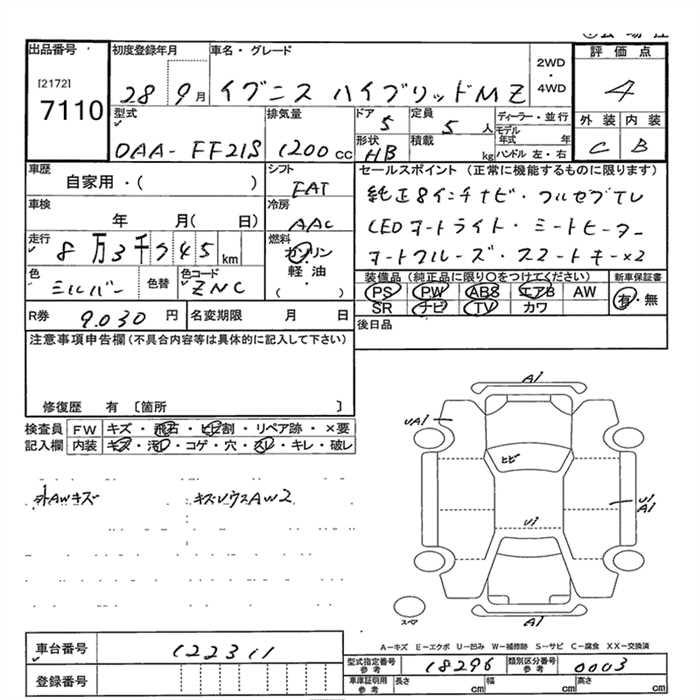 出品番号
[2172]
7110
初度登録年月
28 9月
車名・グレード
イグニス ハイブリッドMZ
2WD
・
4WD
評価点
4
外装 内装
C B
型式
DAA-FF21S
排気量
1200cc
ドア
5
定員
5人
形状
HB
積載
kg
ディーラー・並行
モデル年式 年
ハンドル 左・右
車歴
自家用・( )
シフト
FAT
冷房
AAC
車検
年 月( 日)
走行
8万3千945km
燃料
ガソリン
軽油
( )
色
シルバー
色替
色コード
ZNC
セールスポイント (正常に機能するものに限ります)
純正8インチナビ・フルセグTV
LEDオートライト・シートヒーター
オートクルーズ・スマートキー×2
装備品 (純正品に限り○をつけてください)
PS PW ABS エアB AW
SR ナビ TV カワ
新車保証書
有・無
R券 9.030円
名変期限 月 日
後日品
注意事項申告欄 (不具合内容等は具体的に記入して下さい)
修復歴 有 〔箇所 〕
検査員記入欄
FW キズ・飛石・ヒビ割・リペア跡・×要
内装 キズ・汚れ・コゲ・穴・スレ・キレ・破レ
外AWキズ
キズレウスAW2
A1
UA1
ヒビ
U1
A1
U1
A1
スマ
A-キズ E-エクボ U-凹み W-補修跡 S-サビ C-腐食 XX-交換済
車台番号 122311
登録番号
型式指定番号 参考 18296
類別区分番号 参考 0003
車庫証明用 参考 長さ cm 幅 cm 高さ cm